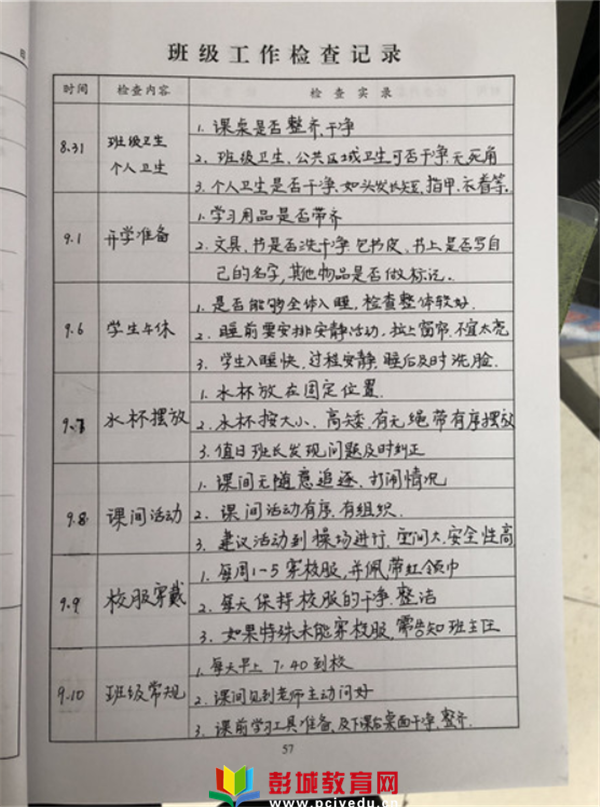 班级工作检查记录
时间 检查内容 检查实录
8.31 班级卫生 个人卫生
1. 课桌是否整齐,干净
2. 班级卫生、公共区域卫生可否干净,无死角
3. 个人卫生是否干净,如头发长短,指甲,衣着等.
9.1 开学准备
1. 学习用品是否带齐
2. 文具、书是否洗干净,包书皮、书上是否写自
己的名字,其他物品是否做标记.
9.6 学生午休
1. 是否能够全体入睡,检查整体较好.
2. 睡前要安排安静活动,拉上窗帘,不宜太亮
3. 学生入睡快,过程安静,睡后及时洗脸.
9.7 水杯摆放
1. 水杯放在固定位置.
2. 水杯按大小、高矮,有无绳带有序摆放
3. 值日班长发现问题及时纠正
9.8 课间活动
1. 课间无随意追逐、打闹情况
2. 课间活动有序,有组织.
3. 建议活动到操场进行,空间大,安全性高
9.9 校服穿戴
1. 每周1-5穿校服,并佩带红领巾
2. 每天保持校服的干净.整洁
3. 如果特殊未能穿校服,需告知班主任
9.10 班级常规
1. 每天早上7:40到校
2. 课间见到老师主动问好
3. 课前学习工具准备,及下课后桌面干净,整齐.
57
彭城教育网
www.pcjyedu.cn